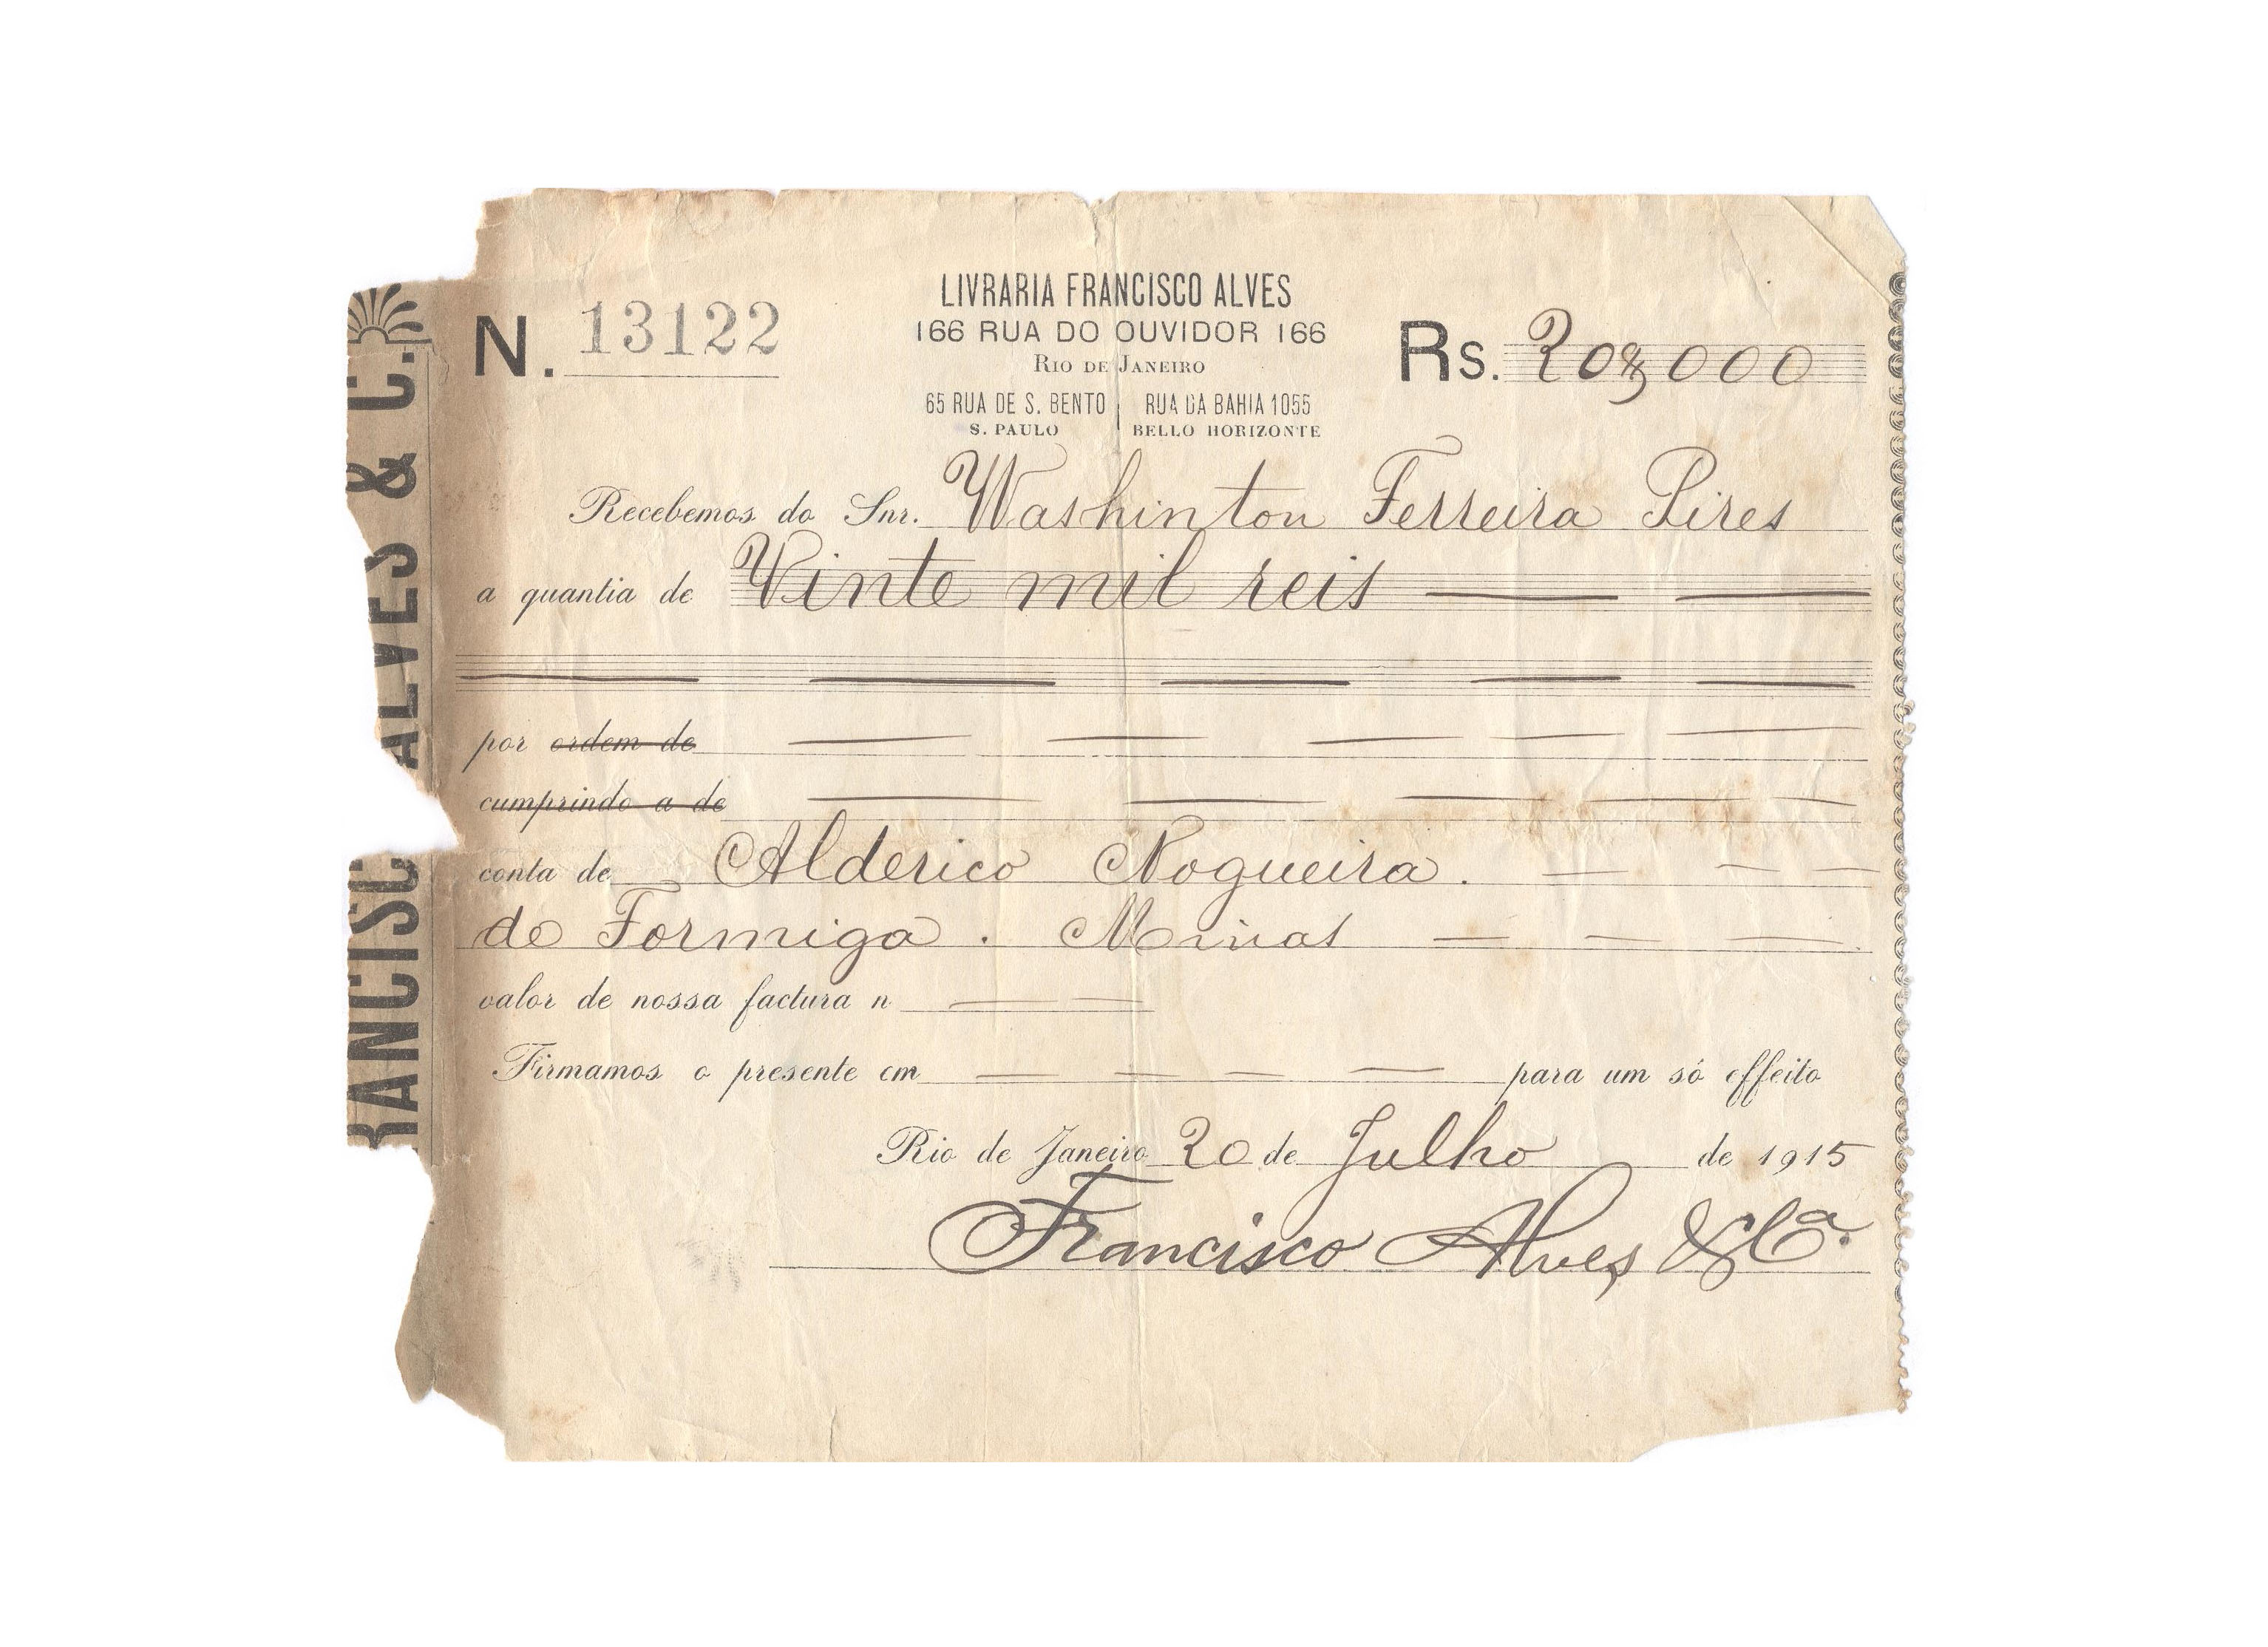 RANCISC ALVES & C.
N. 13122
LIVRARIA FRANCISCO ALVES
166 RUA DO OUVIDOR 166
RIO DE JANEIRO
65 RUA DE S. BENTO
S. PAULO
RUA DA BAHIA 1055
BELLO HORIZONTE
Rs. 20$000
Recebemos do Snr. Washinton Ferreira Pires
a quantia de Vinte mil reis
por ordem de
cumprindo a de
conta de Alderico Nogueira.
de Formiga. Minas
valor de nossa factura n
Firmamos o presente em para um só effeito
Rio de Janeiro 20 de Julho de 1915
Francisco Alves & Ca.